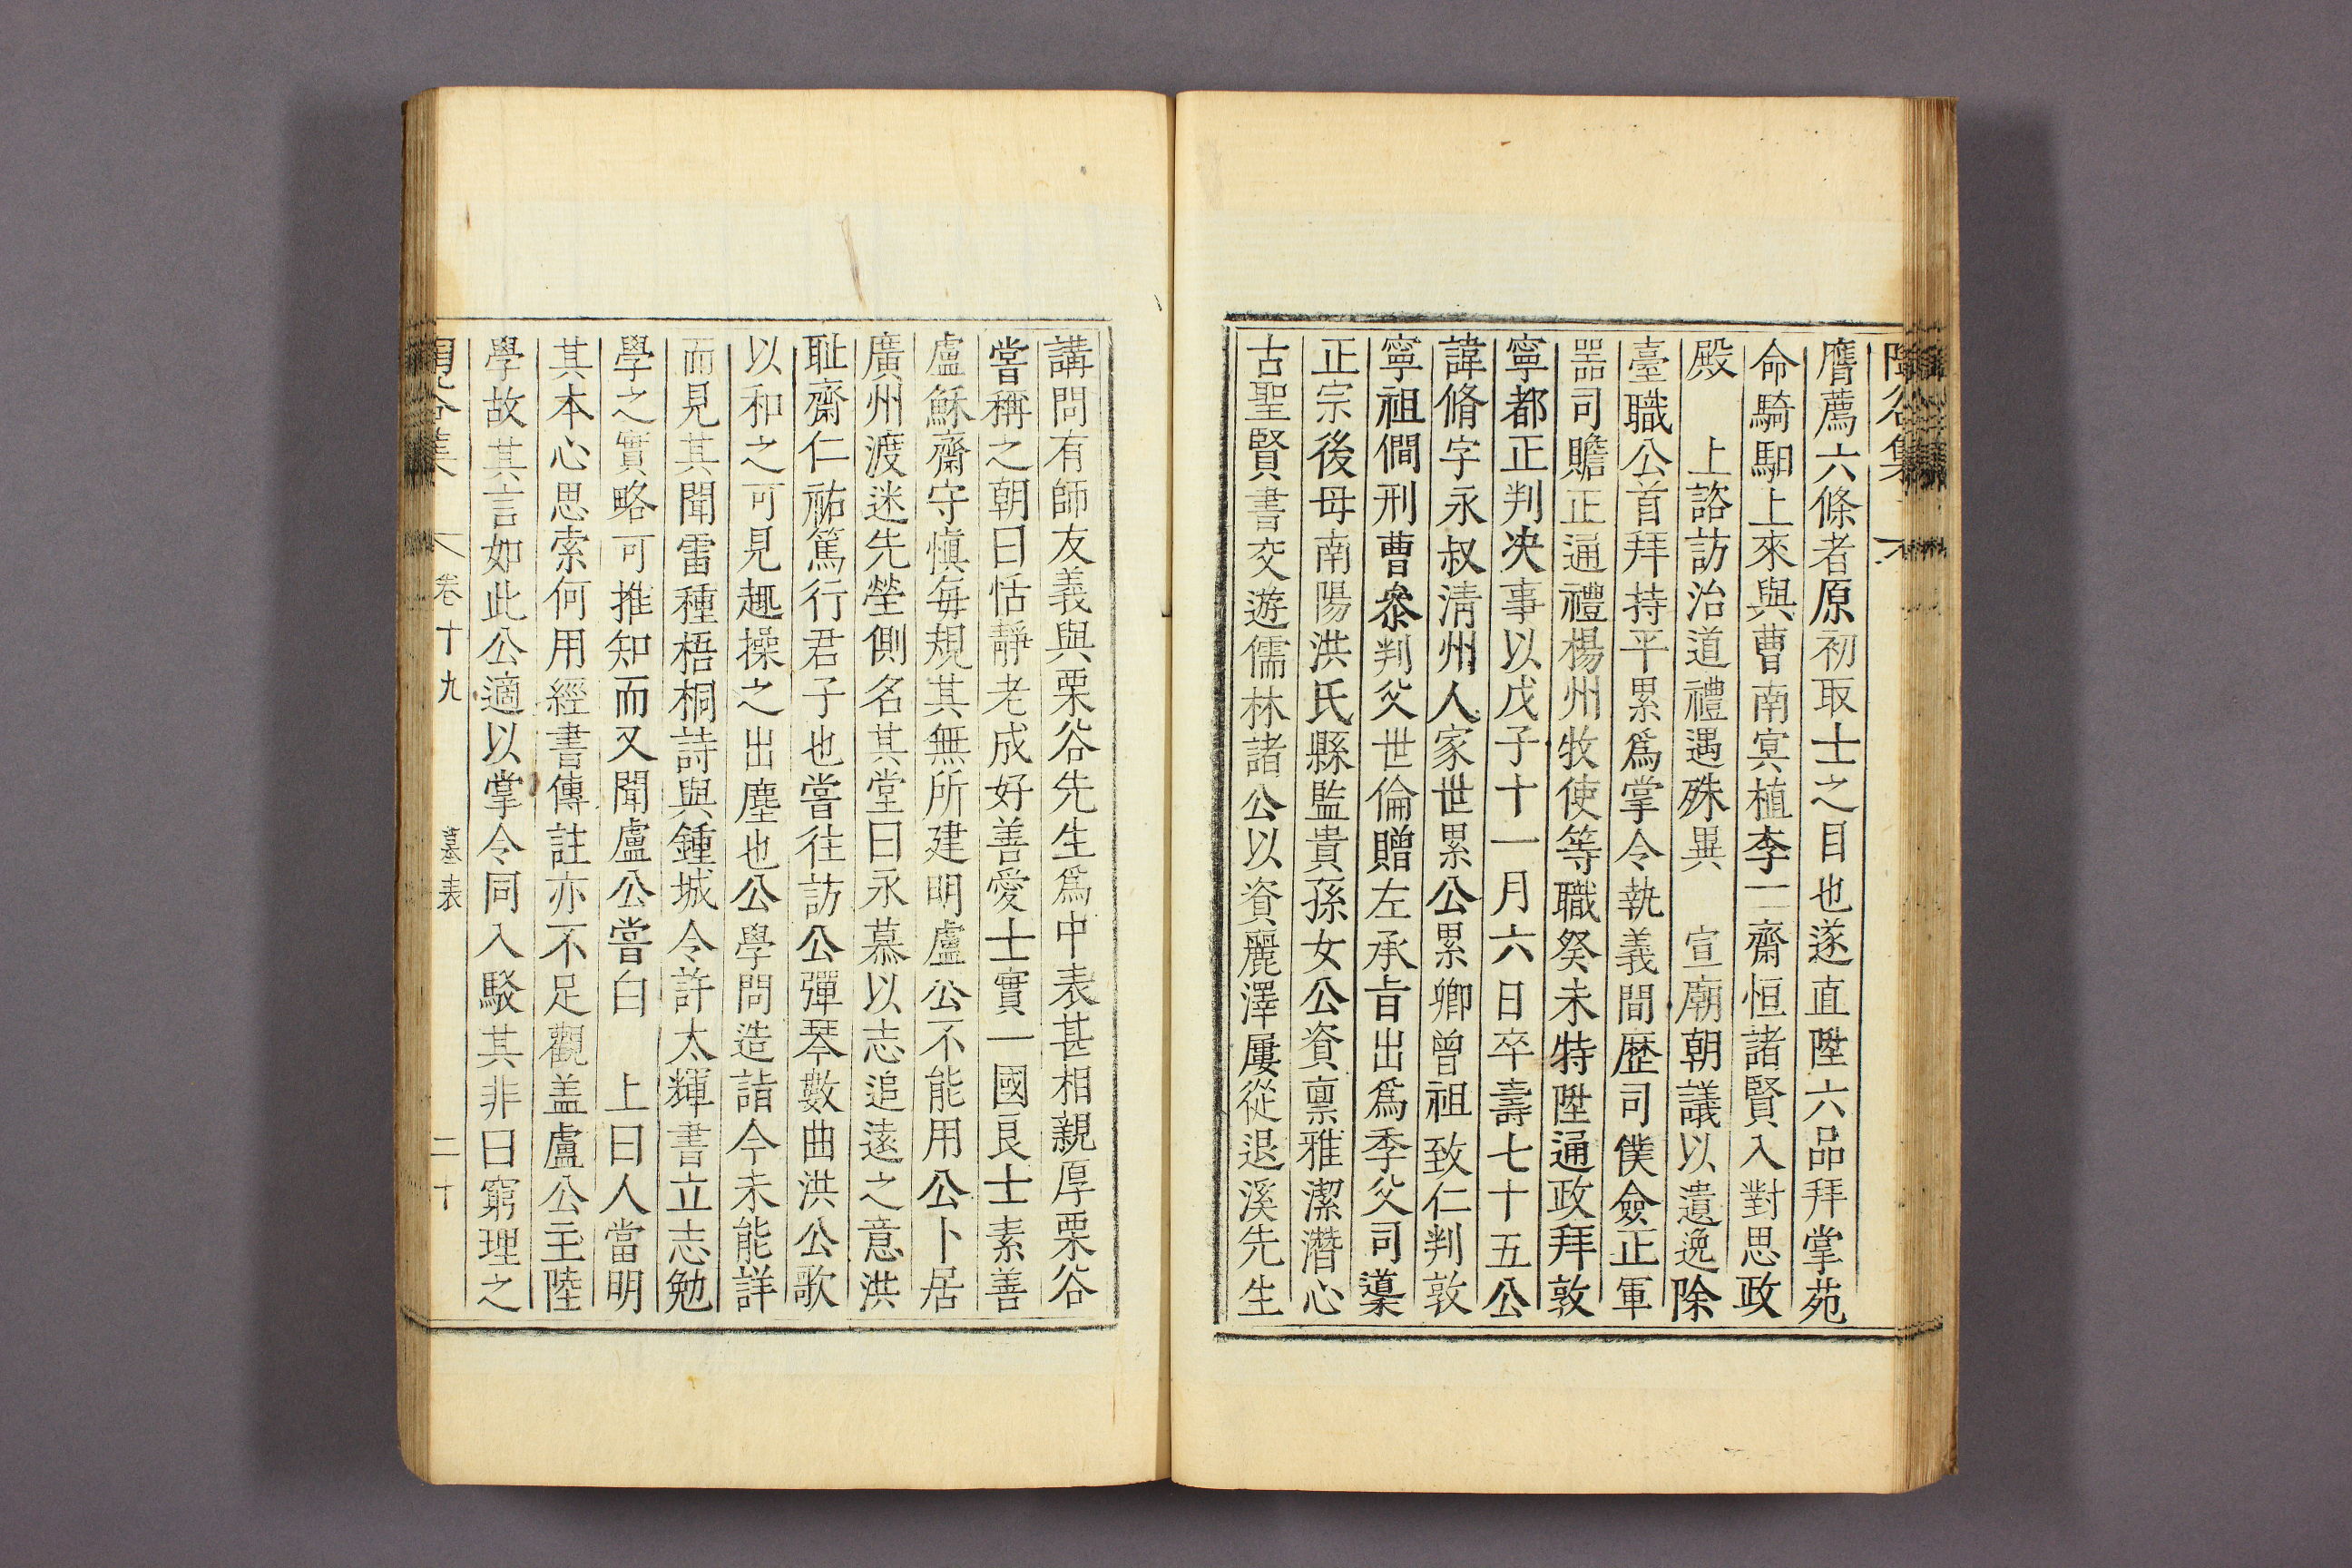 陶谷集
膺薦六條者原初取士之目也遂直陞六品拜掌苑
命騎馹上來與曹南㝠植李一齋恒諸賢入對思政
殿　上諮訪治道禮遇殊異　宣廟朝議以遺逸除
臺職公首拜持平累爲掌令執義間歷司僕僉正軍
器司贍正通禮楊州牧使等職癸未特陞通政拜敦
寧都正判决事以戊子十一月六日卒壽七十五公
諱脩字永叔淸州人家世累公累卿曾祖致仁判敦
寧祖僩刑曹叅判父世倫贈左承旨出爲季父司𥳑
正宗後母南陽洪氏縣監貴孫女公資禀雅潔潛心
古聖賢書交遊儒林諸公以資麗澤屢從退溪先生
講問有師友義與栗谷先生爲中表甚相親厚栗谷
嘗稱之朝曰恬靜老成好善愛士實一國良士素善
盧穌齋守愼每規其無所建明盧公不能用公卜居
廣州渡迷先塋側名其堂曰永慕以志追遠之意洪
耻齋仁祐篤行君子也嘗往訪公彈琴數曲洪公歌
以和之可見趣操之出塵也公學問造詣今未能詳
而見其聞雷種梧桐詩與鍾城令許太輝書立志勉
學之實略可推知而又聞盧公嘗白　上曰人當明
其本心思索何用經書傳註亦不足觀盖盧公主陸
學故其言如此公適以掌令同入駁其非曰窮理之
卷十九　墓表　二十